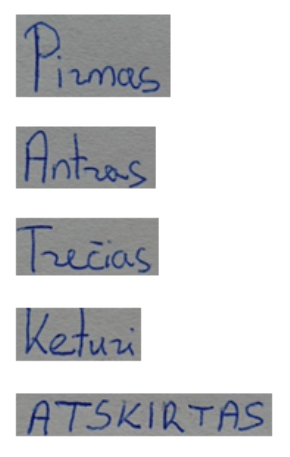 Pirmas
Antras
Trečias
Keturi
ATSKIRTAS